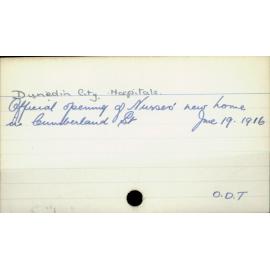 Dunedin City. Hospitals.
Official opening of Nurses' new home
in Cumberland St June 19. 1916
O.D.T